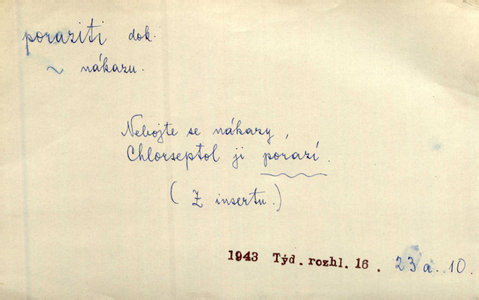 poraziti dok.
~ nákazu.
Nebojte se nákazy
Chlorseptol ji porazí.
(Z insertu.)
1943 Týd. rozhl. 16. 23a. 10.